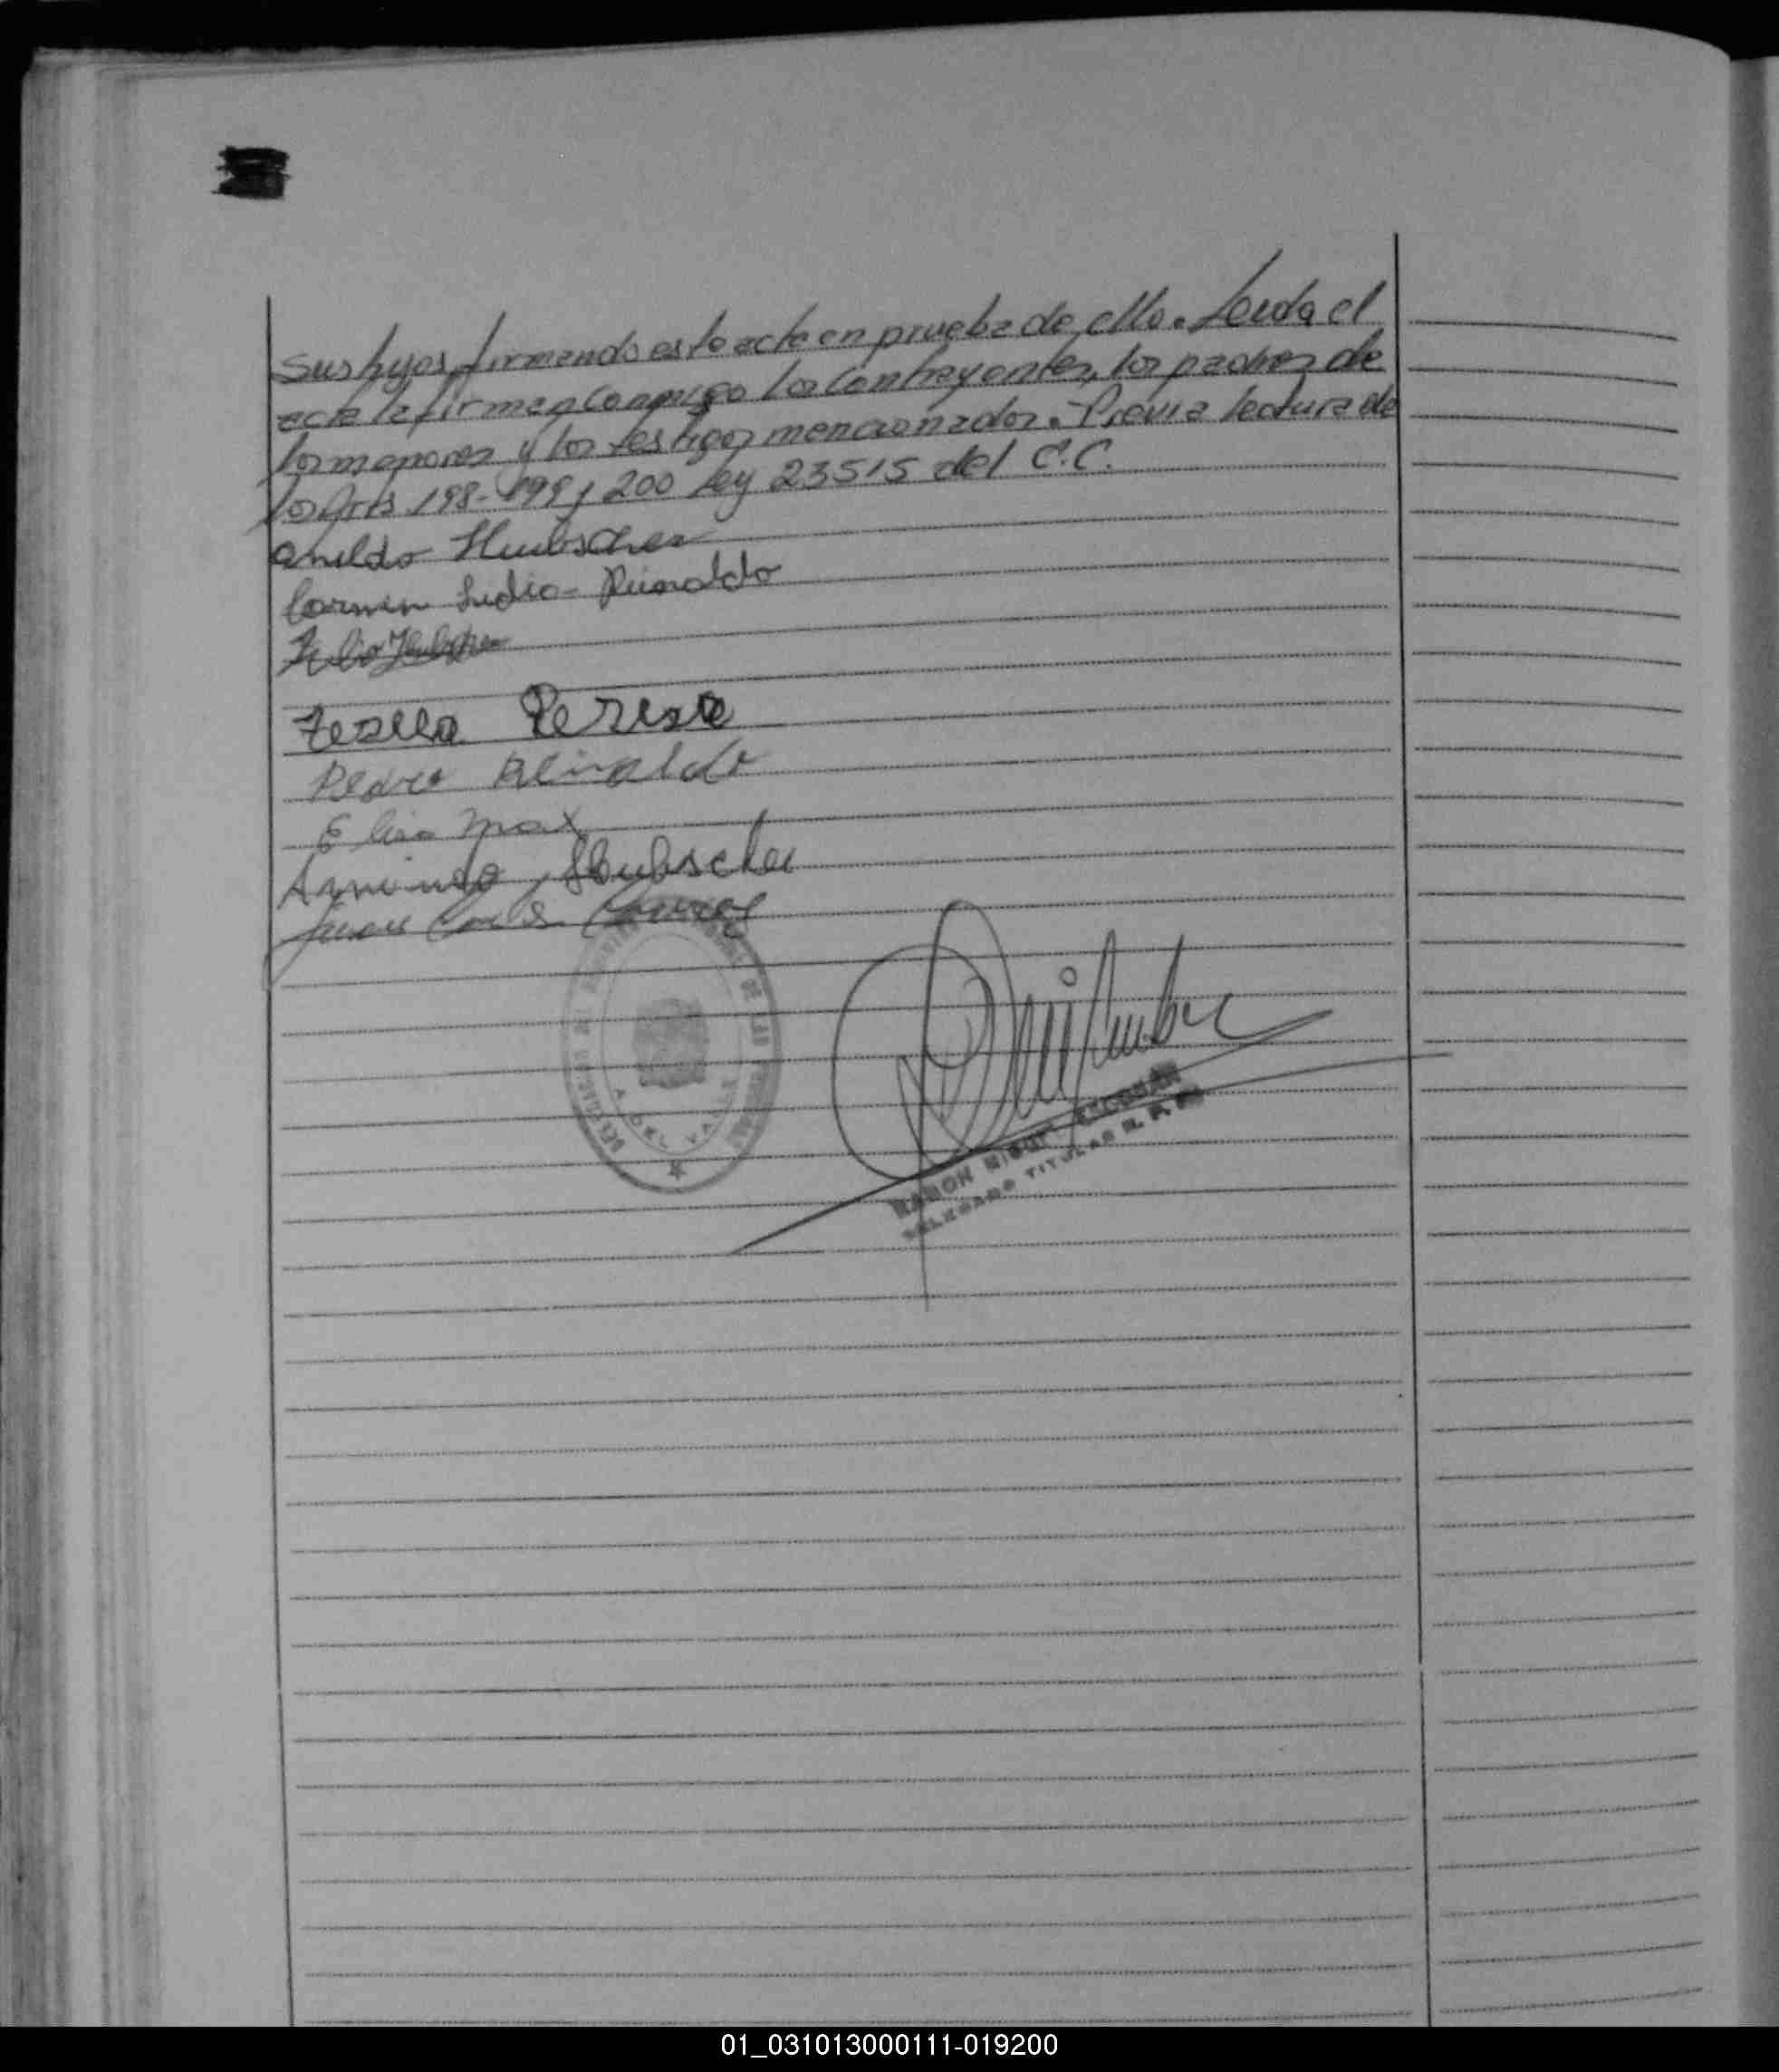 sus hijos, firmando este acta en prueba de ello. Leida el
acta la firman conmigo los contrayentes, los padres de
los menores y los testigos mencionados. Previa lectura de
los Arts 198-199 y 200 Ley 23515 del C.C.
Anildo Hubscher
Carmen Lidia Reinaldo
Julio Hubscher
Pereira
Pedro Reinaldo
Elisa Max
Armindo Hubscher
Juan Carlos
A. DEL VALLE
RAMON MIGUEL ESCOBAR
DELEGADO TITULAR R. P.
01_031013000111-019200